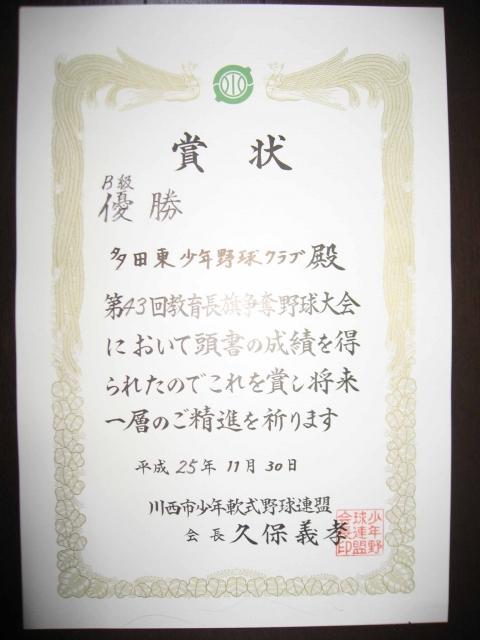 賞状
B級
優勝
多田東少年野球クラブ殿
第43回教育長旗争奪野球大会
において頭書の成績を得
られたのでこれを賞し将来
一層のご精進を祈ります
平成25年11月30日
川西市少年軟式野球連盟
会長 久保義孝
少年野
球連盟
会長印